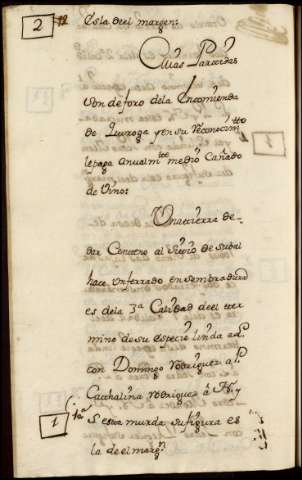 2
Es la del margen:
Cuias Parcedas
son de foro dela Encomienda
de Quiroga y en su reconocim.to
le paga anualm.te medio Cañado
de vino:
Una tierra de
dar Centeno al sitio de
haze un ferrado en sembradura
es dela 3a Calidad del ter
mino de su especie linda a L.
con Domingo rodriguez a P.
Catthalina rodriguez á N. y
1
S. esta murda su figura es
la de el marg.n